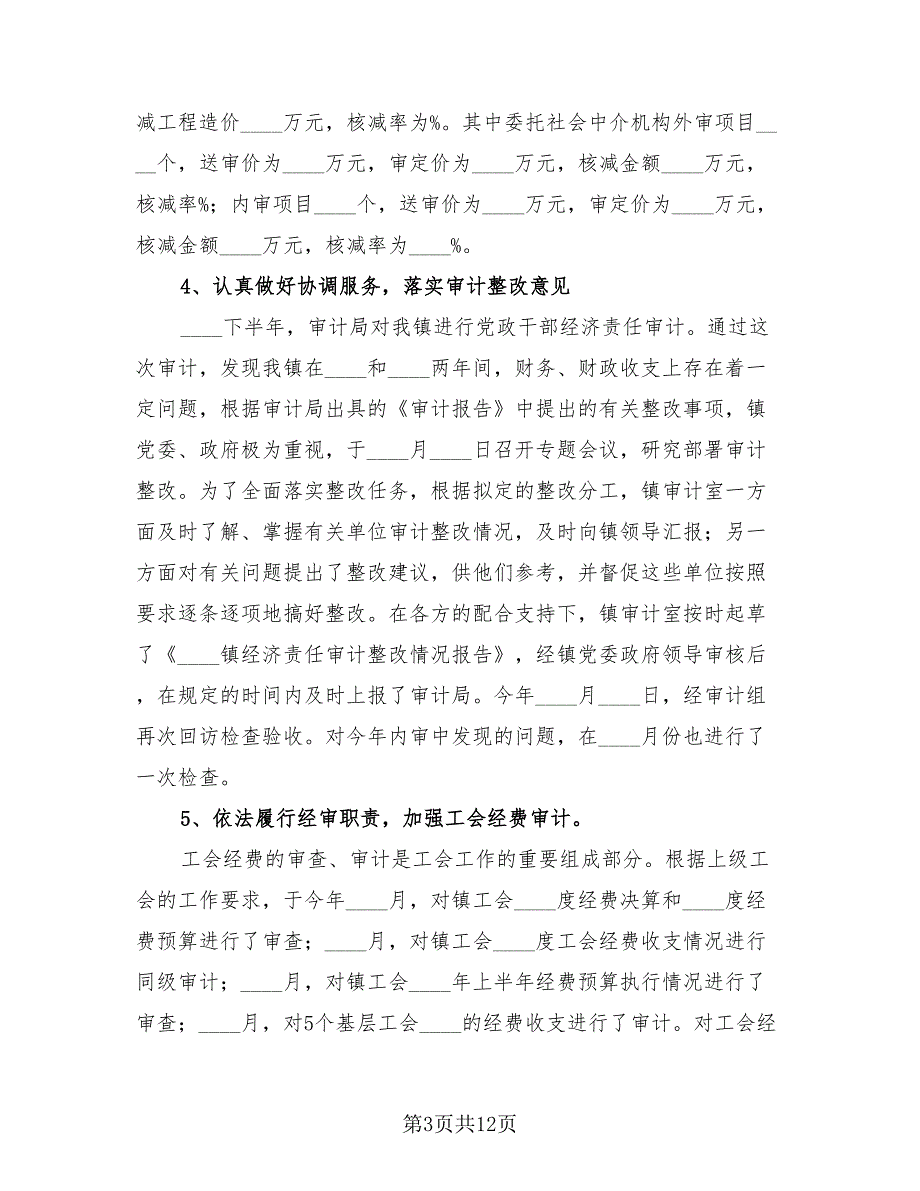 减工程造价____万元，核减率为%。其中委托社会中介机构外审项目__
__个，送审价为____万元，审定价为____万元，核减金额____万元，
核减率%；内审项目____个，送审价为____万元，审定价为____万元，
核减金额____万元，核减率为____%。
4、认真做好协调服务，落实审计整改意见
____下半年，审计局对我镇进行党政干部经济责任审计。通过这
次审计，发现我镇在____和____两年间，财务、财政收支上存在着一
定问题，根据审计局出具的《审计报告》中提出的有关整改事项，镇
党委、政府极为重视，于____月____日召开专题会议，研究部署审计
整改。为了全面落实整改任务，根据拟定的整改分工，镇审计室一方
面及时了解、掌握有关单位审计整改情况，及时向镇领导汇报；另一
方面对有关问题提出了整改建议，供他们参考，并督促这些单位按照
要求逐条逐项地搞好整改。在各方的配合支持下，镇审计室按时起草
了《____镇经济责任审计整改情况报告》，经镇党委政府领导审核后
，在规定的时间内及时上报了审计局。今年____月____日，经审计组
再次回访检查验收。对今年内审中发现的问题，在____月份也进行了
一次检查。
5、依法履行经审职责，加强工会经费审计。
工会经费的审查、审计是工会工作的重要组成部分。根据上级工
会的工作要求，于今年____月，对镇工会____度经费决算和____度经
费预算进行了审查；____月，对镇工会____度工会经费收支情况进行
同级审计；____月，对镇工会____年上半年经费预算执行情况进行了
审查；____月，对5个基层工会____的经费收支进行了审计。对工会经
第3页共12页